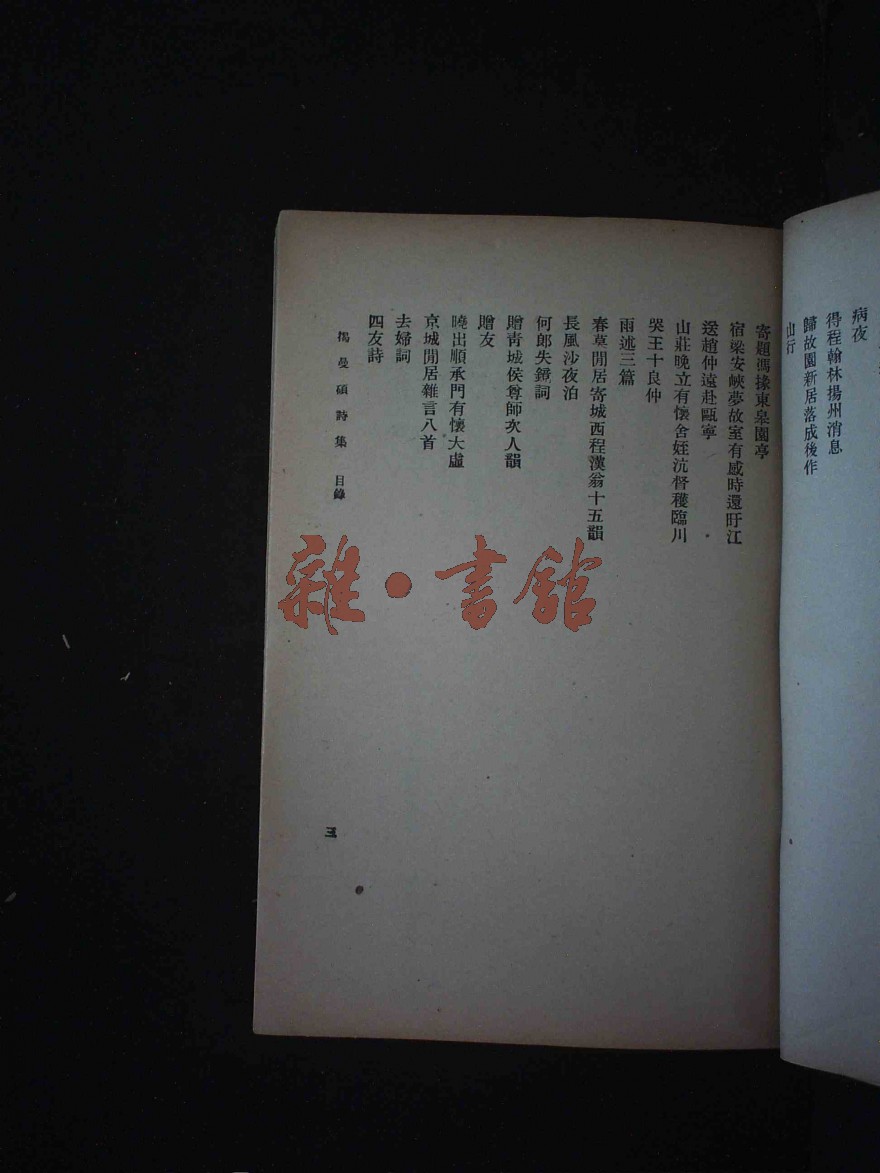 病夜
得程翰林揚州消息
歸故園新居落成後作
山行
寄題馮掾東皋園亭
宿梁安峽夢故室有感時還旴江
送趙仲遠赴甌寧
山莊晚立有懷舍姪沆督穫臨川
哭王十良仲
雨述三篇
春莫閒居寄城西程漢翁十五韻
長風沙夜泊
何郎失鏡詞
贈靑城侯尊師次人韻
贈友
曉出順承門有懷大虛
京城閒居雜言八首
去婦詞
四友詩
揭曼碩詩集 目錄
三
雜·書館